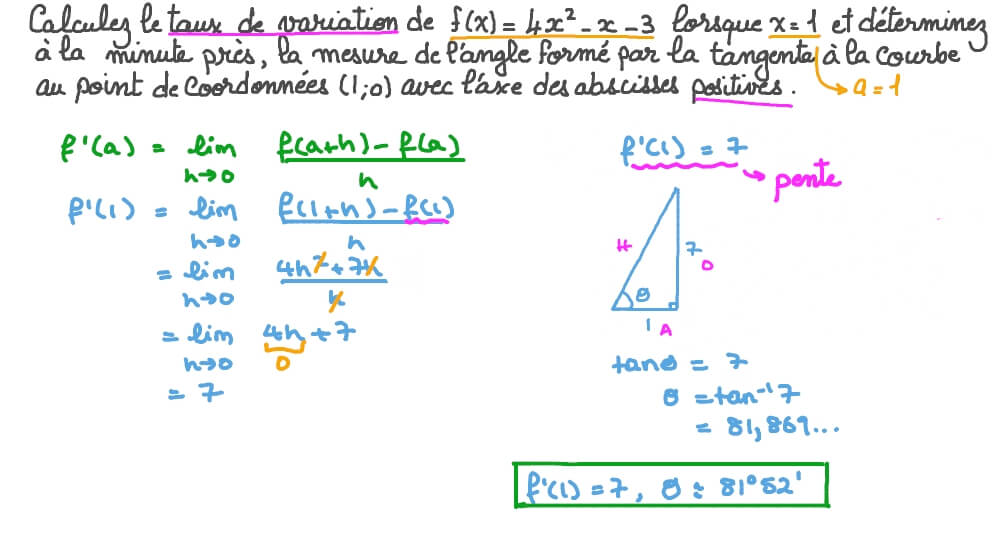 Calculez le taux de variation de f(x) = 4x² - x - 3 lorsque x = 1 et déterminez
à la minute près, la mesure de l'angle formé par la tangente à la courbe
au point de coordonnées (1;0) avec l'axe des abscisses positives. → a = 1
f'(a) = lim f(a+h) - f(a)
h→0 h
f'(1) = lim f(1+h) - f(1)
h→0 h
= lim 4h² + 7h
h→0 h
= lim 4h + 7
h→0 0
= 7
f'(1) = 7
→ pente
H 7 O
θ
1 A
tanθ = 7
θ = tan⁻¹7
= 81,869...
f'(1) = 7, θ ≈ 81°52'